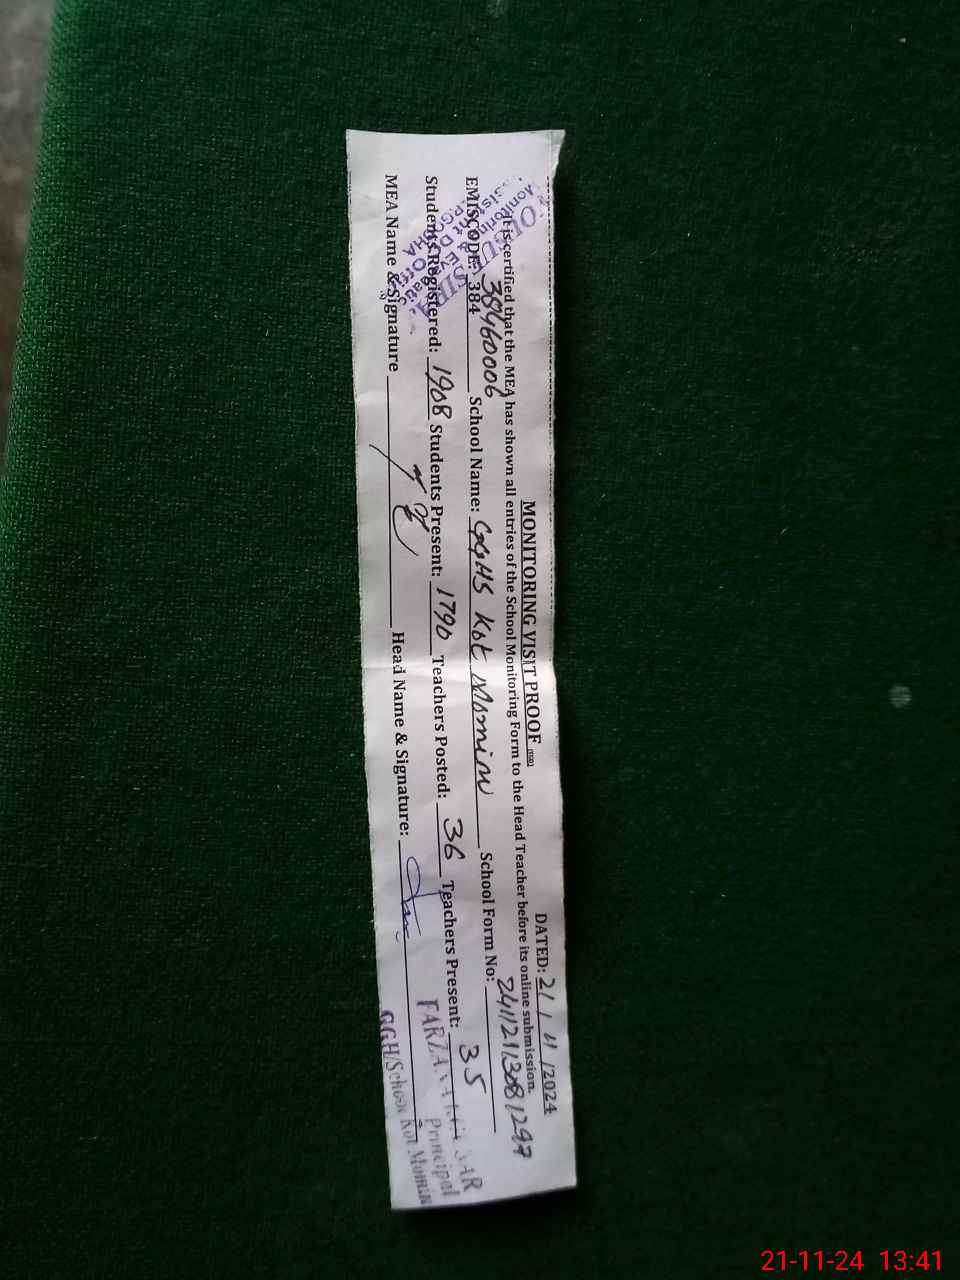 MONITORING VISIT PROOF
DATED: 21/11/2024
It is certified that the MEA has shown all entries of the School Monitoring Form to the Head Teacher before its online submission.
EMISCODE: 384 38460006 School Name: GGHS Kot Momin School Form No:
Students Registered: 1908 Students Present: 1790 Teachers Posted: 36 Teachers Present: 35
MEA Name & Signature Head Name & Signature:
Principal
GGH/School Kot Momin
21-11-24 13:41